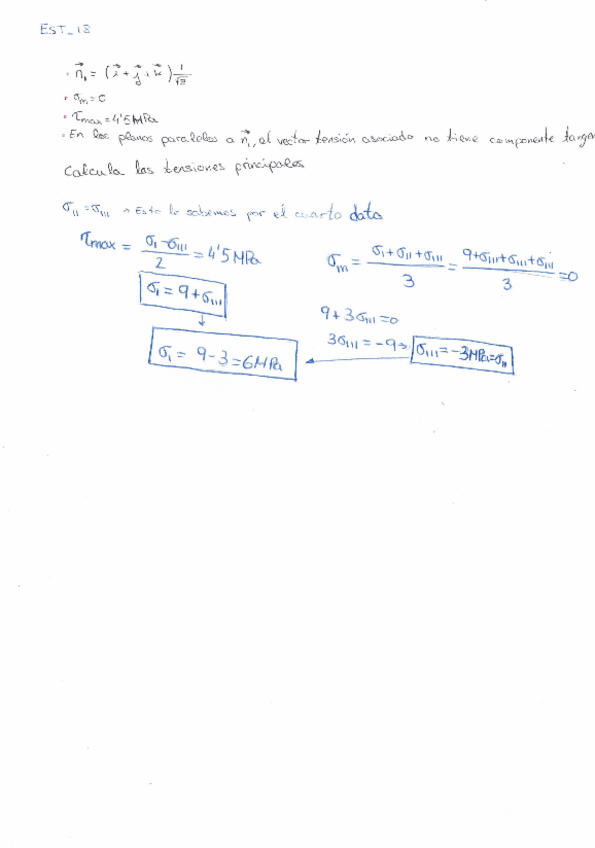 EST_18
· n⃗₁ = (i⃗ + j⃗ + k⃗) 1/√3
· σm = 0
· τmax = 4'5 MPa
· En los planos paralelos a n⃗₁, el vector tensión asociado no tiene componente tangen
Calcula las tensiones principales
σ_II = σ_III → Esto lo sabemos por el cuarto dato
τmax = (σ_I - σ_III)/2 = 4'5 MPa
σ_I = 9 + σ_III
σ_I = 9 - 3 = 6 MPa
σm = (σ_I + σ_II + σ_III)/3 = (9 + σ_III + σ_III + σ_III)/3 = 0
9 + 3σ_III = 0
3σ_III = -9 → σ_III = -3 MPa = σ_II